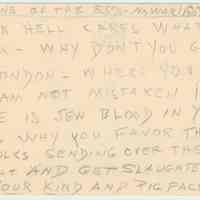 OF THE
HELL CARES WHAT
- WHY DON'T YOU G
ONDON - WHERE YOU
AM NOT MISTAKEN I
E IS JEW BLOOD IN Y
WHY YOU FAVOR TH
OLKS SENDING OVER THE
AND GET SLAUGHTE
OUR KIND AND PIG FACE